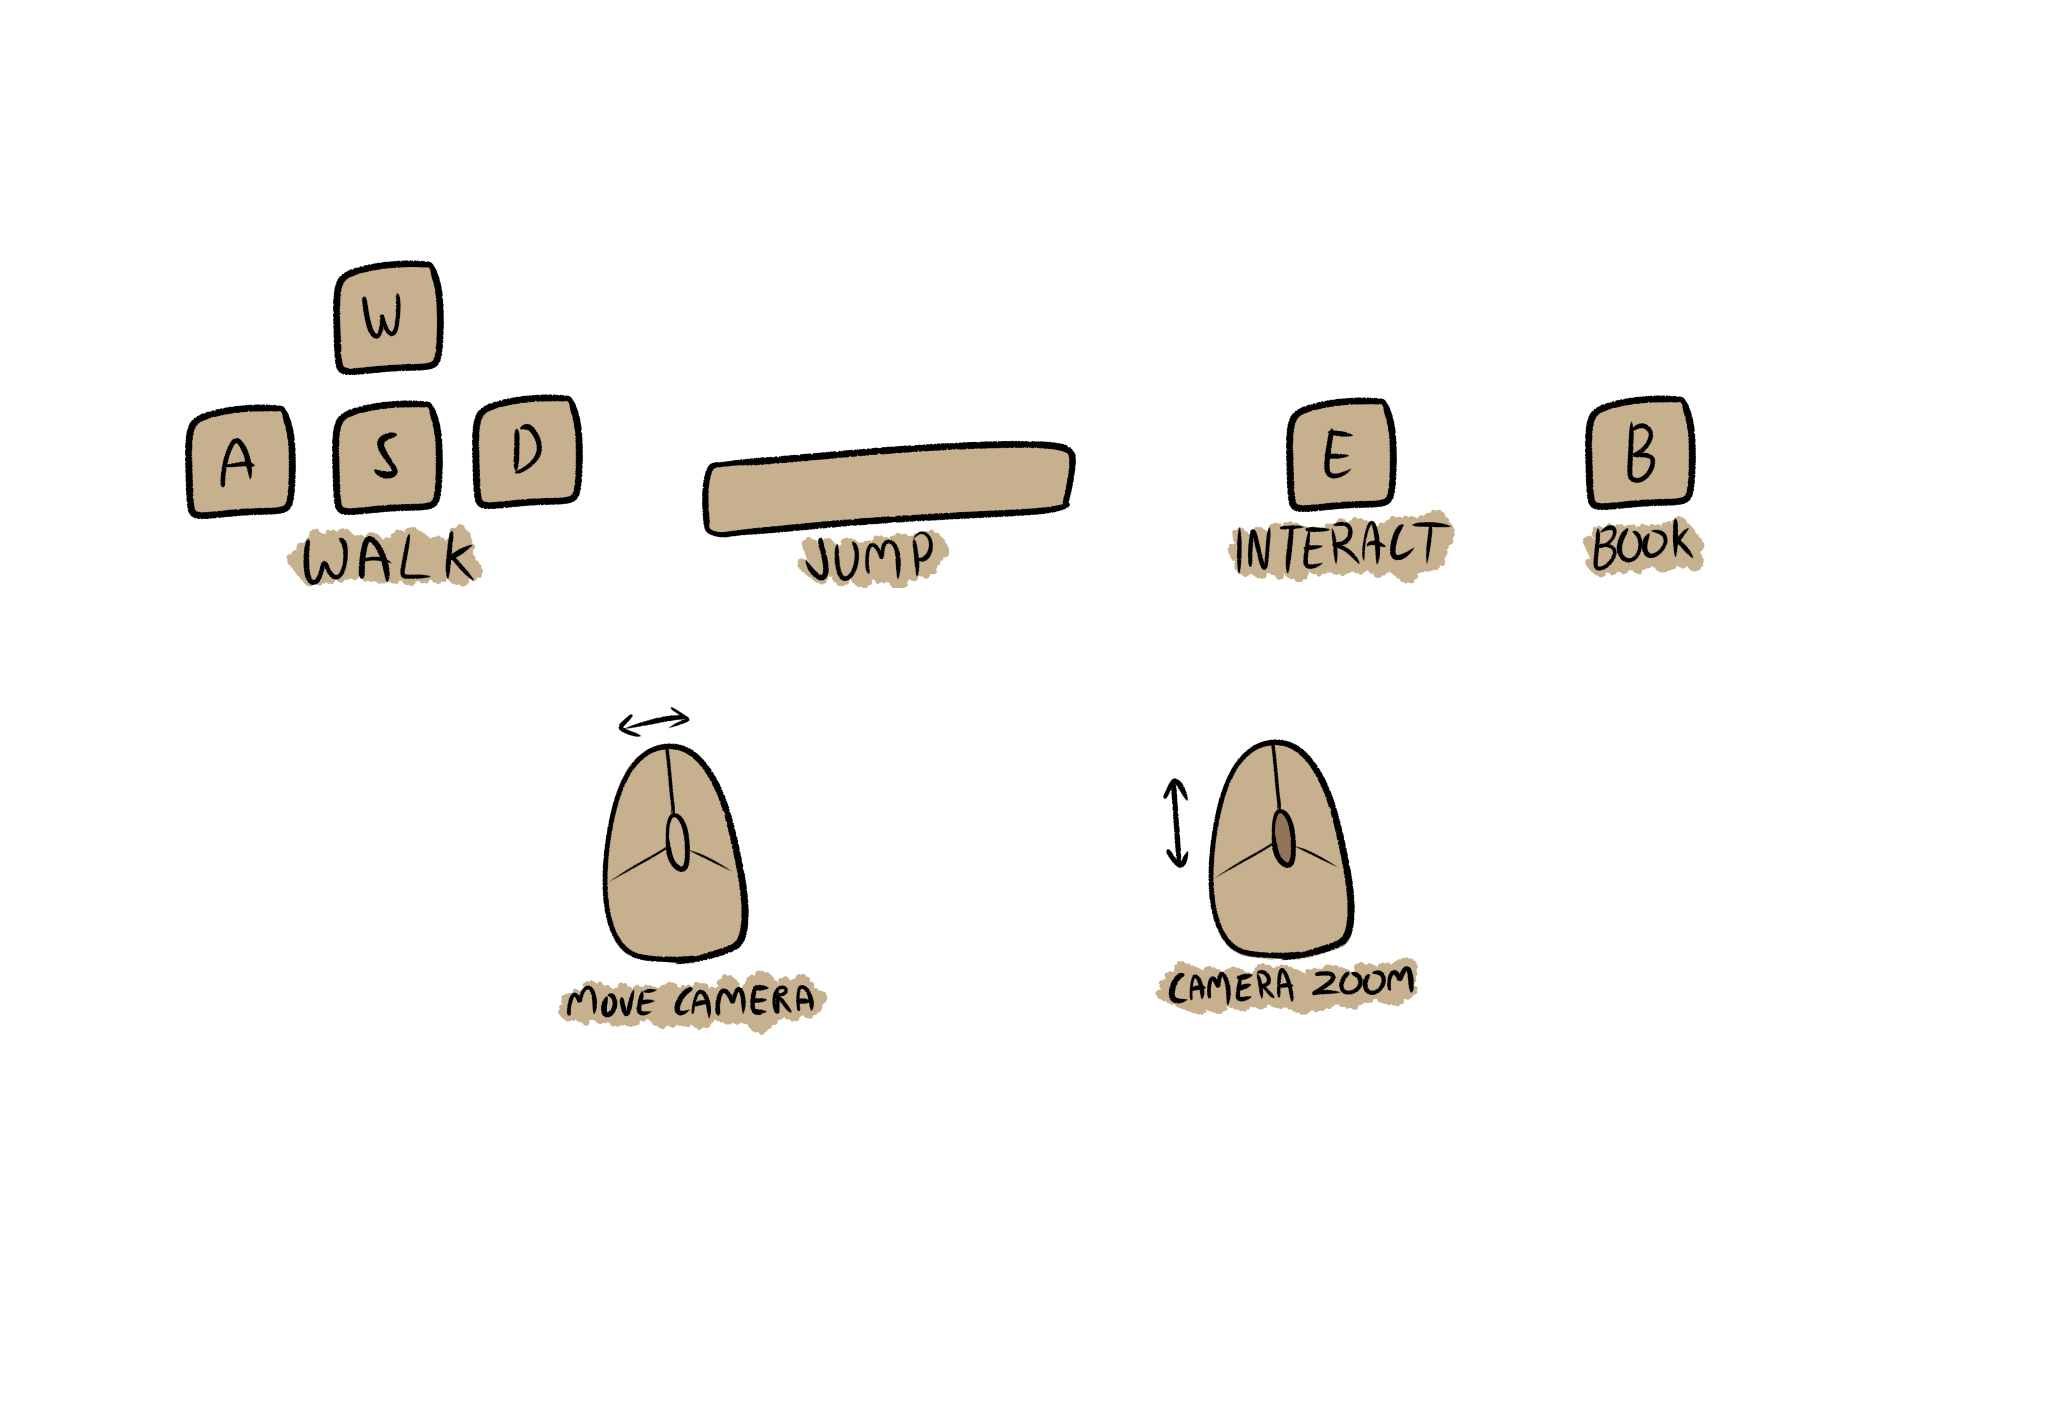 W
A S D
WALK
JUMP
E
INTERACT
B
BOOK
MOVE CAMERA
CAMERA ZOOM